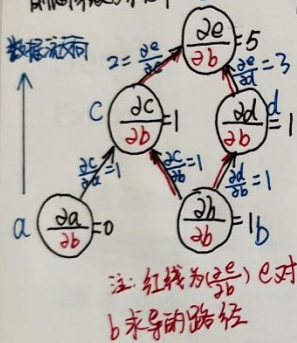 数据流方向
∂e/∂b = 5
2 = ∂e/∂c
∂e/∂d = 3
c ∂c/∂b = 1
∂d/∂b = 1 d
∂c/∂a = 1
∂c/∂b = 1
∂d/∂b = 1
a ∂a/∂b = 0
∂b/∂b = 1 b
注: 红线为(∂e/∂b) e对
b求导的路径